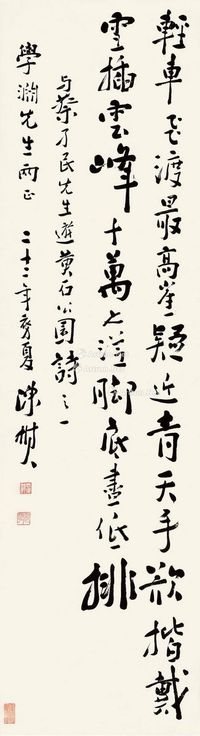 輕車飛渡最高崖疑近青天手欲揩戴
雪插雲峰千萬笏
脚底盡低排
與蔡孑民先生遊黃石公園詩之一
學瀾先生兩正
二十三年季夏